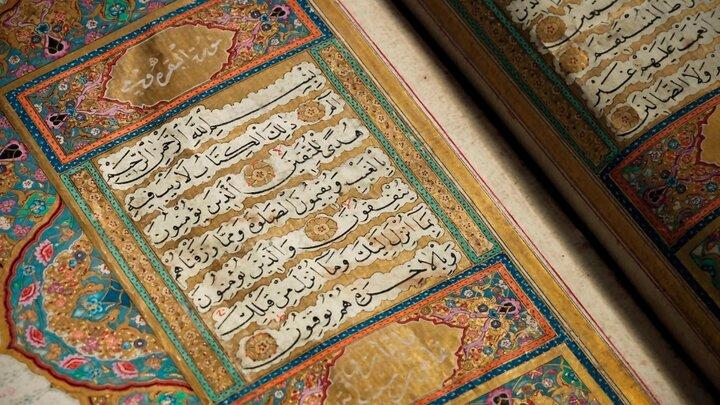 المستقيم
نعمت عليهم غير
ولا الضالين
بسم الله الرحمن الرحيم
الم ذلك الكتاب لا ريب فيه
هدى للمتقين الذين يؤمنون
بالغيب ويقيمون الصلوة ومما رزقناهم
ينفقون والذين يؤمنون
بما أنزل إليك وما أنزل من قبلك
وبالآخرة هم يوقنون